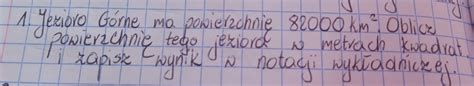 1. Jezioro Górne ma powierzchnię 82000 km². Oblicz
powierzchnię tego jeziora w metrach kwadrat.
i zapisz wynik w notacji wykładniczej.